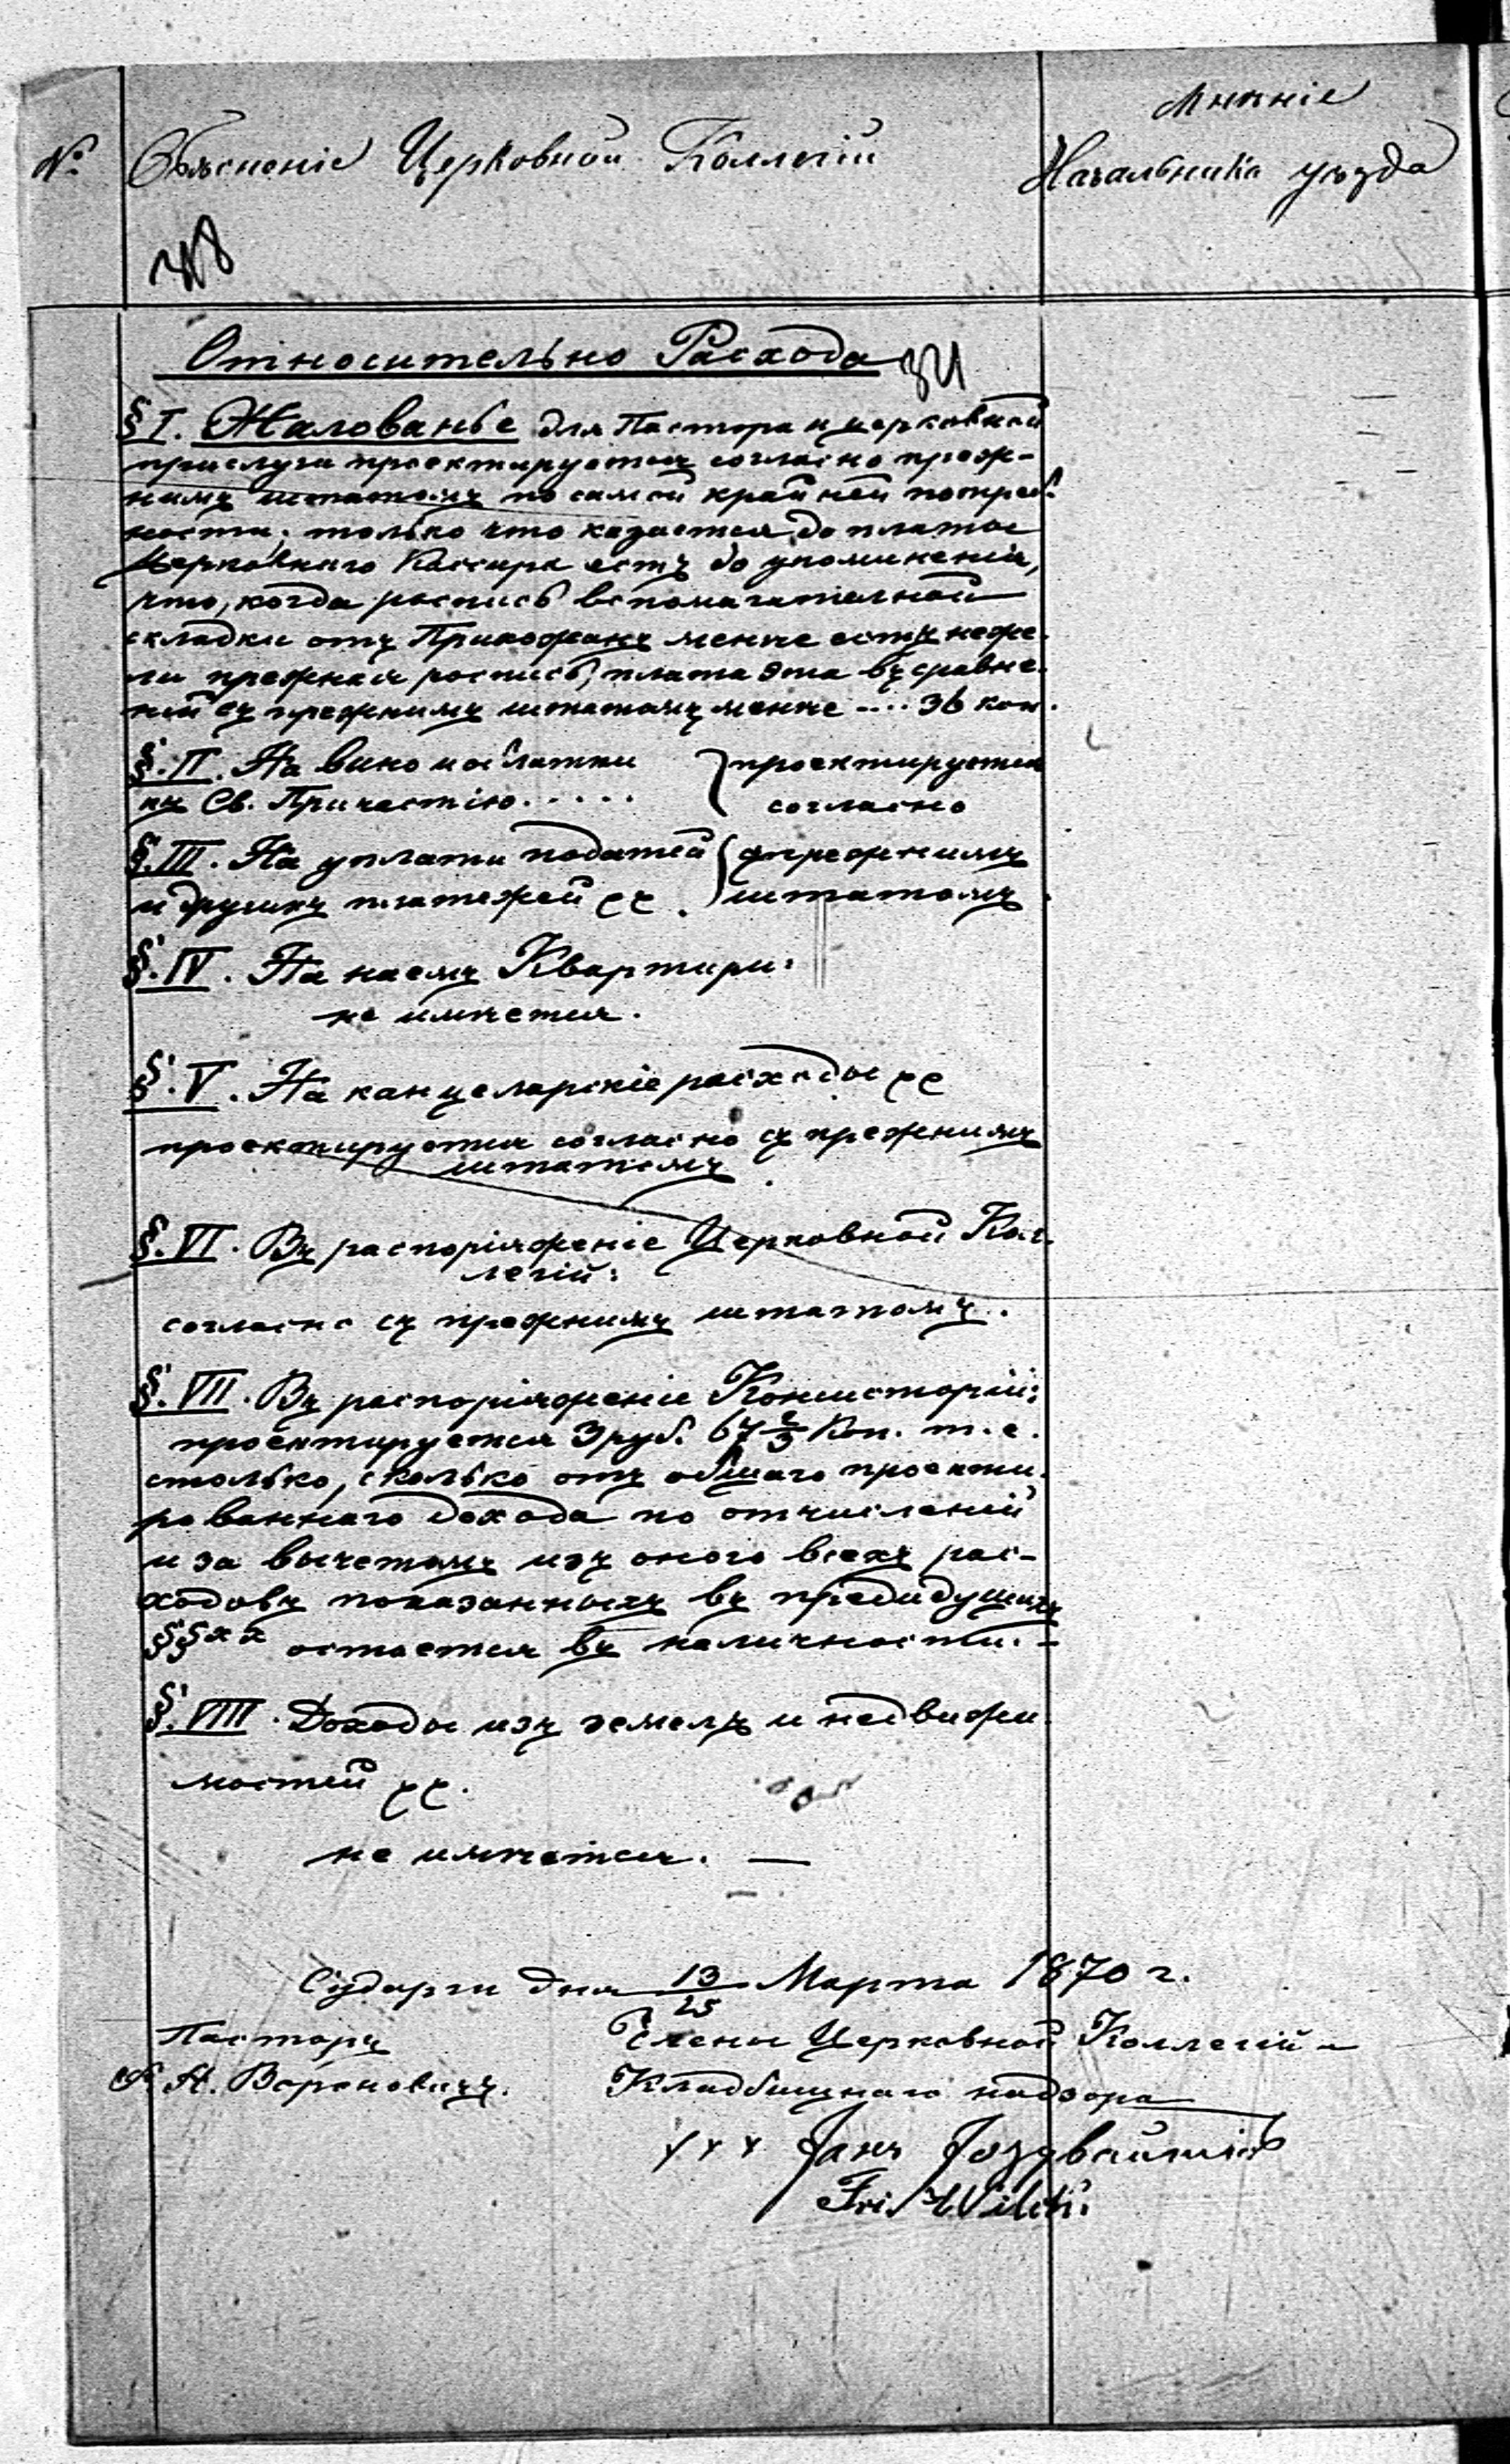 № Объясненіе Церковной Коллегій
Мнѣніе
Начальника уѣзда
Относительно Расхода
§ I. Жалованье для Пастора и церковной
прислуги проектируется согласно преж-
нимъ штатомъ по самой крайней потреб-
ности; только что касается до платы
Церковнаго Кассира есть до упоминенія,
что, когда роспись вспомагательной
складки отъ Прихожанъ менѣе есть неже-
ли прежная роспись, плата эта въ сравне-
ній съ прежнимъ штатомъ менѣе .... 36 коп.
§. II. На вино и облатки
къ Св. Причастію. . . . .
проектируется
согласно
§. III. На уплати податей
и другихъ платежей
съ прежнимъ
штатомъ
§. IV. На наемъ Квартири:
не имѣется.
§. V. На канцеларскіе расходы
проектируется согласно съ прежнимъ
штатомъ.
§. VI. Въ распоріяженіе Церковной Кол-
легій:
согласно съ прежнимъ штатомъ.
§. VII. Въ распоріяженіе Консисторій:
проектируется 3 руб. 67 2/3 Коп. т. е.
столько, сколько отъ общаго проекти-
рованнаго дохода по отчисленій
и за вычетомъ изъ оного всехъ рас-
ходовъ показанныхъ въ предидущихъ
§§хх остается въ наличности. -
§. VIII. Доходы изъ земель и недвижи-
мостей
не имѣется. —
Сударги дня 13/25 Марта 1870 г.
Пасторъ
Члены Церковной Коллегій
К. А. Вороновичъ.
Кладбищнаго надзора
+++ Янъ